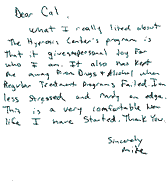 Dear Cal,
What I really liked about
The Hypnosis Center's program is
That it gives personal joy for
who I am. It also has kept
me away from Drugs + Alcohol when
Regular Treatment Programs Failed. I'm
less Stressed and rarely on edge.
This is a very comfortable new
life I have started. Thank You.
Sincerely
Mike